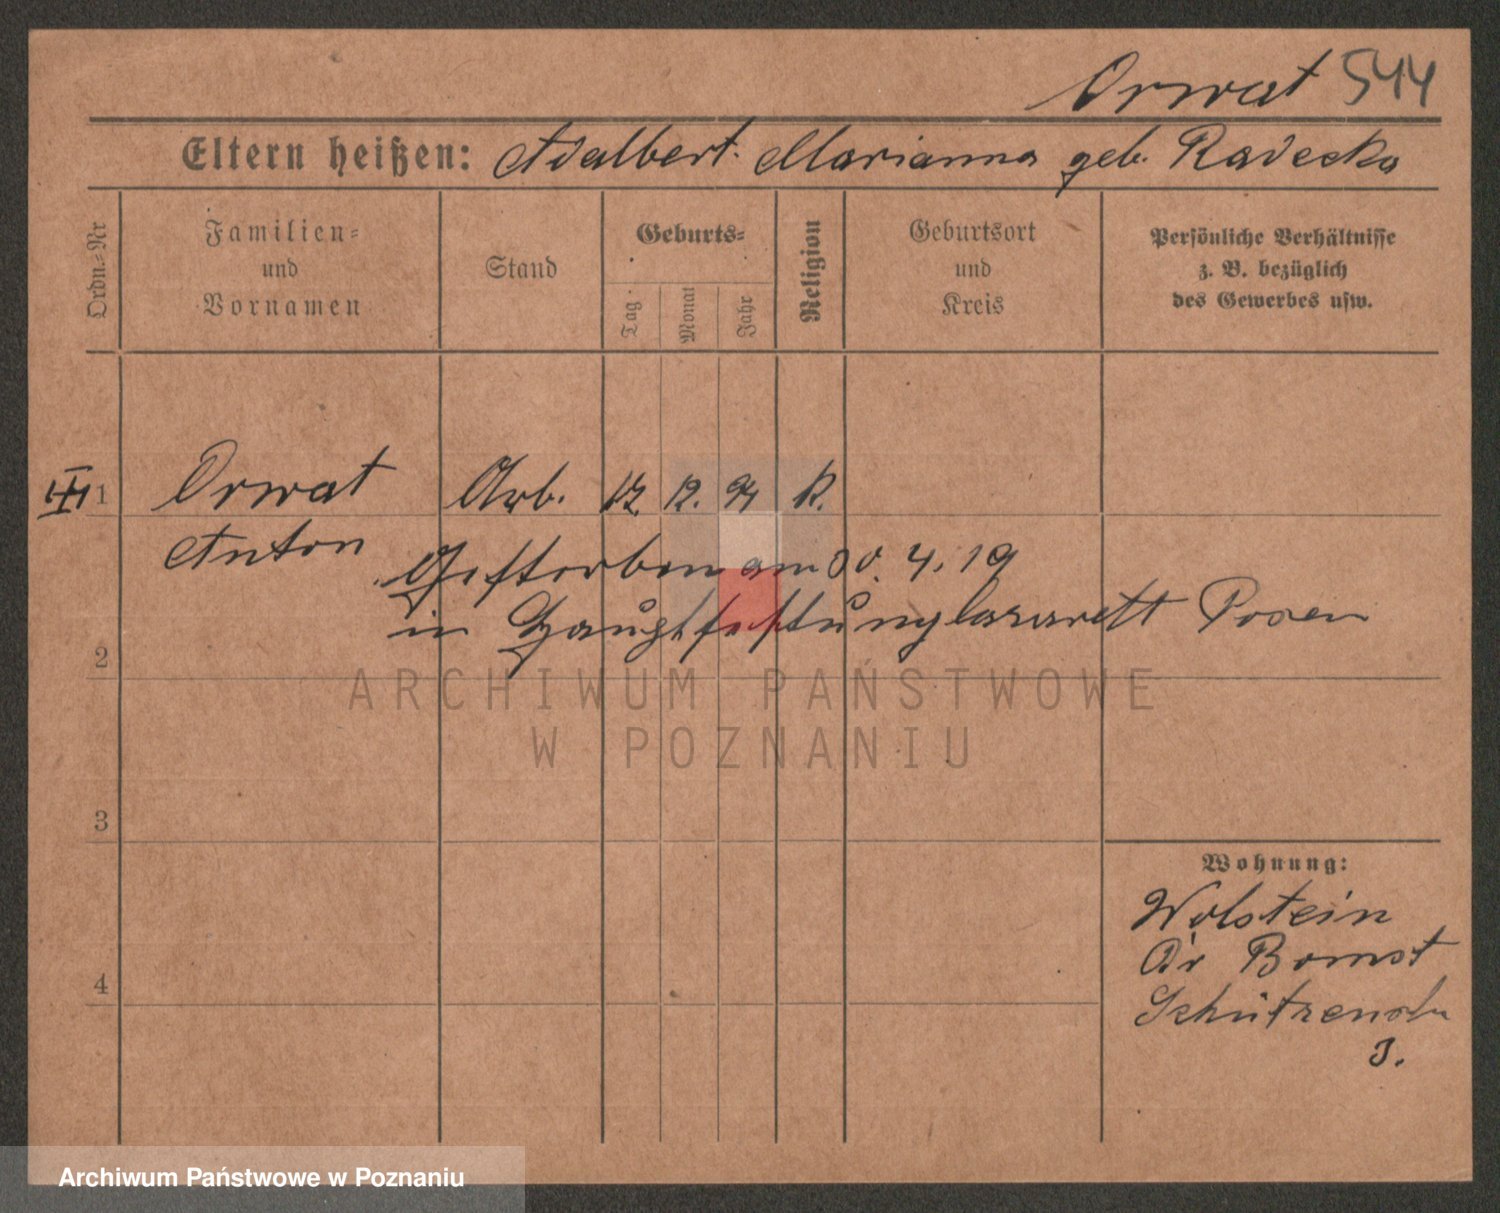 Orwat 544
Eltern heißen: Adalbert. Marianna geb. Radecka
Ordn.-Nr
Familien-
und
Vornamen
Stand
Geburts-
Tag
Monat
Jahr
Religion
Geburtsort
und
Kreis
Persönliche Verhältnisse
z. B. bezüglich
des Gewerbes usw.
III 1 Orwat Arb. 12. 94 K.
Anton
Gestorben am 30. 4. 19
in Hauptfestungslazarett Posen
2
ARCHIWUM PAŃSTWOWE
W POZNANIU
3
Wohnung:
Wolstein
Bomst
4
Schützenstr
3.
Archiwum Państwowe w Poznaniu